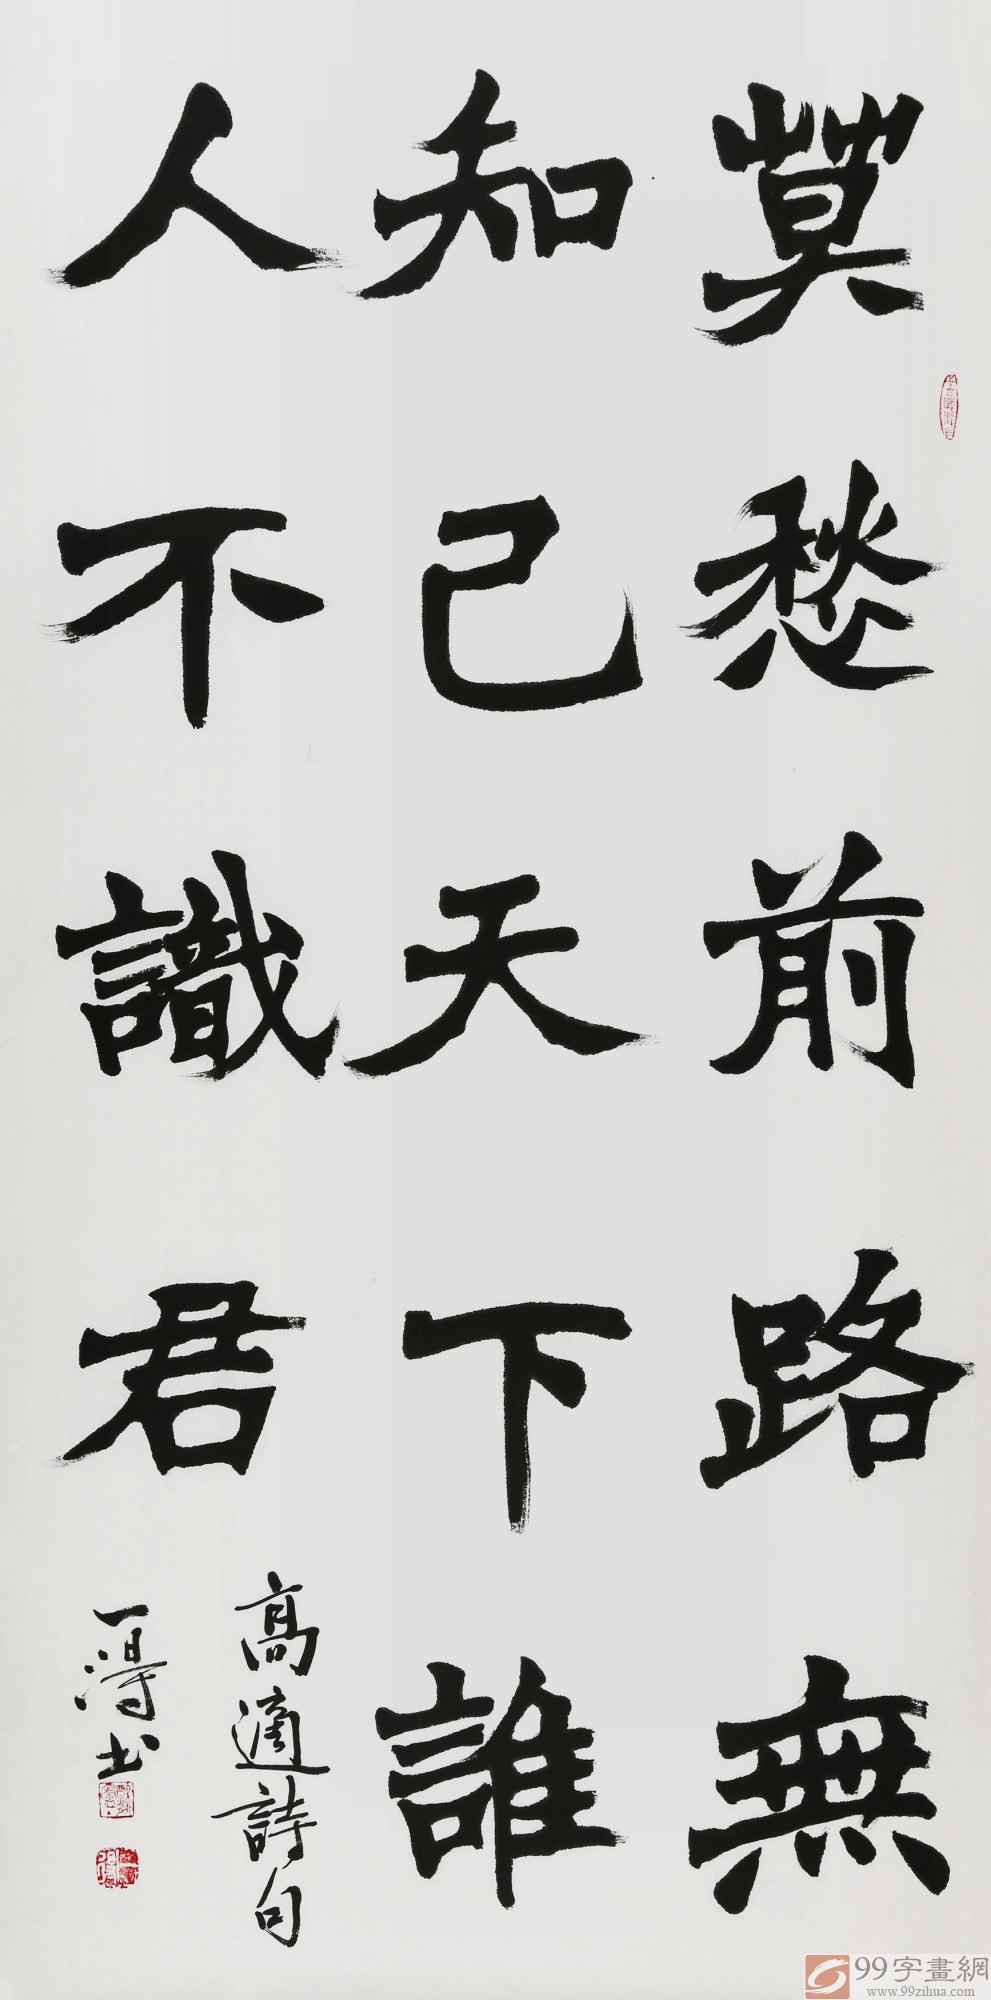 莫愁前路無
知己天下誰
人不識君
高適詩句
一得书
99字畫網
www.99zihua.com